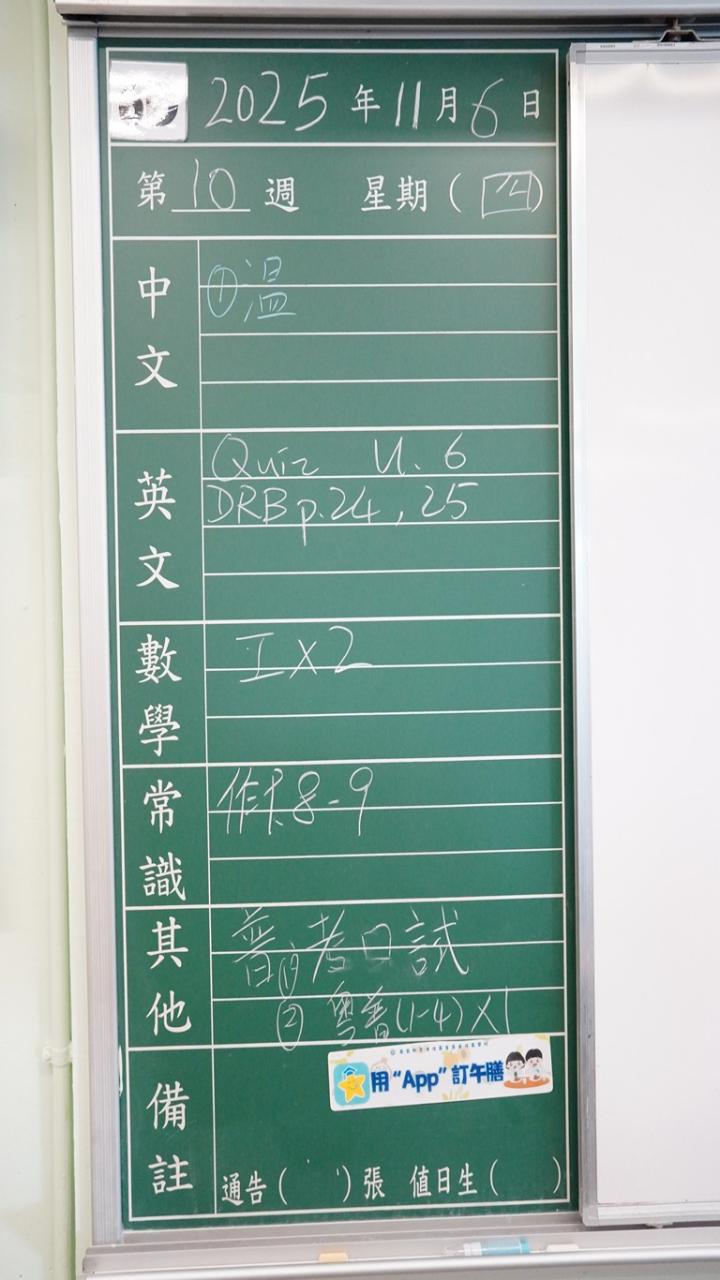 2025年11月6日
第10週 星期(四)
中文
①溫
英文
Quiz U. 6
DRB p.24, 25
數學
工x2
常識
作P.8-9
其他
普①考口試
② 粵普(1-4)x1
備註
用“App”訂午膳
通告( )張 值日生( )